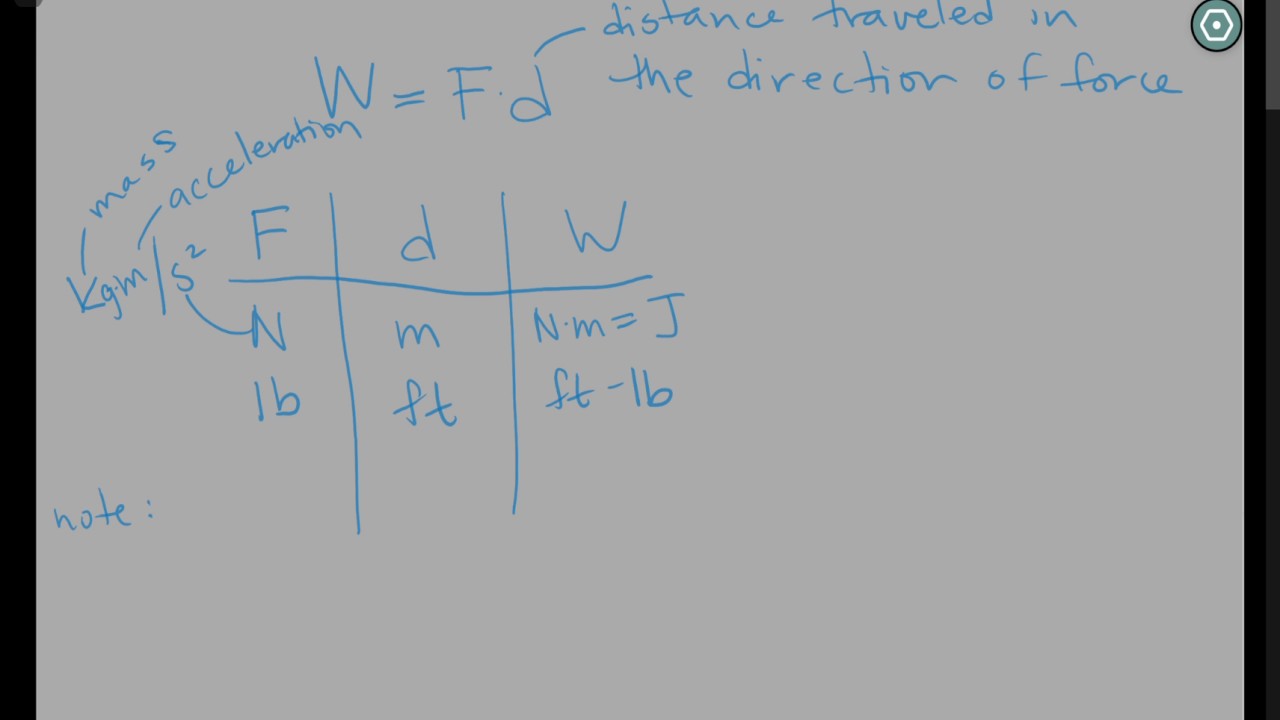 distance traveled in
W = F·d the direction of force
mass
acceleration
F d W
kg·m/s²
N m N·m = J
lb ft ft-lb
note: